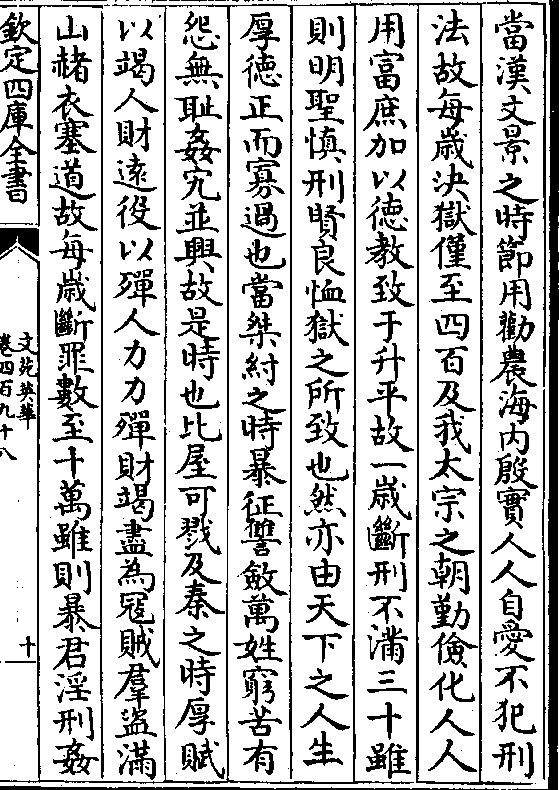 當漢文景之時節用勸農海内殷實人人自愛不犯刑
法故每歳决獄僅至四百及我太宗之朝勤儉化人人
用富庶加以徳教致于升平故一歳斷刑不滿三十雖
則明聖慎刑賢良恤獄之所致也然亦由天下之人生
厚徳正而寡過也當桀紂之時暴征讐斂萬姓窮苦有
怨無耻姦宄並興故是時也比屋可戮及秦之時厚賦
以竭人財逺役以殫人力力殫財竭盡為冦賊羣盜滿
山赭衣塞道故每歳斷罪數至十萬雖則暴君淫刑姦
欽定四庫全書
文苑英華
卷四百九十八
十